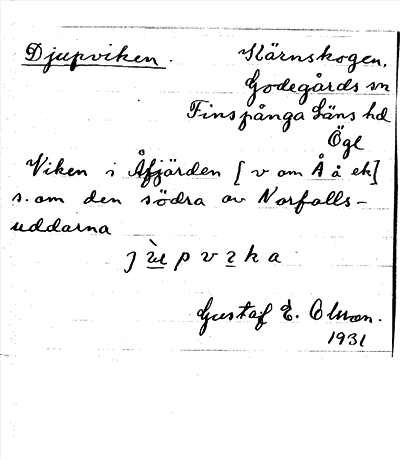 Djupviken. Kärnskogen.
Godegårds sn
Finspånga Läns hd
Ögl
Viken i Åfjärden [v om Å å ek]
s. om den södra av Norfalls-
uddarna
Gustaf E. Olsson.
1931